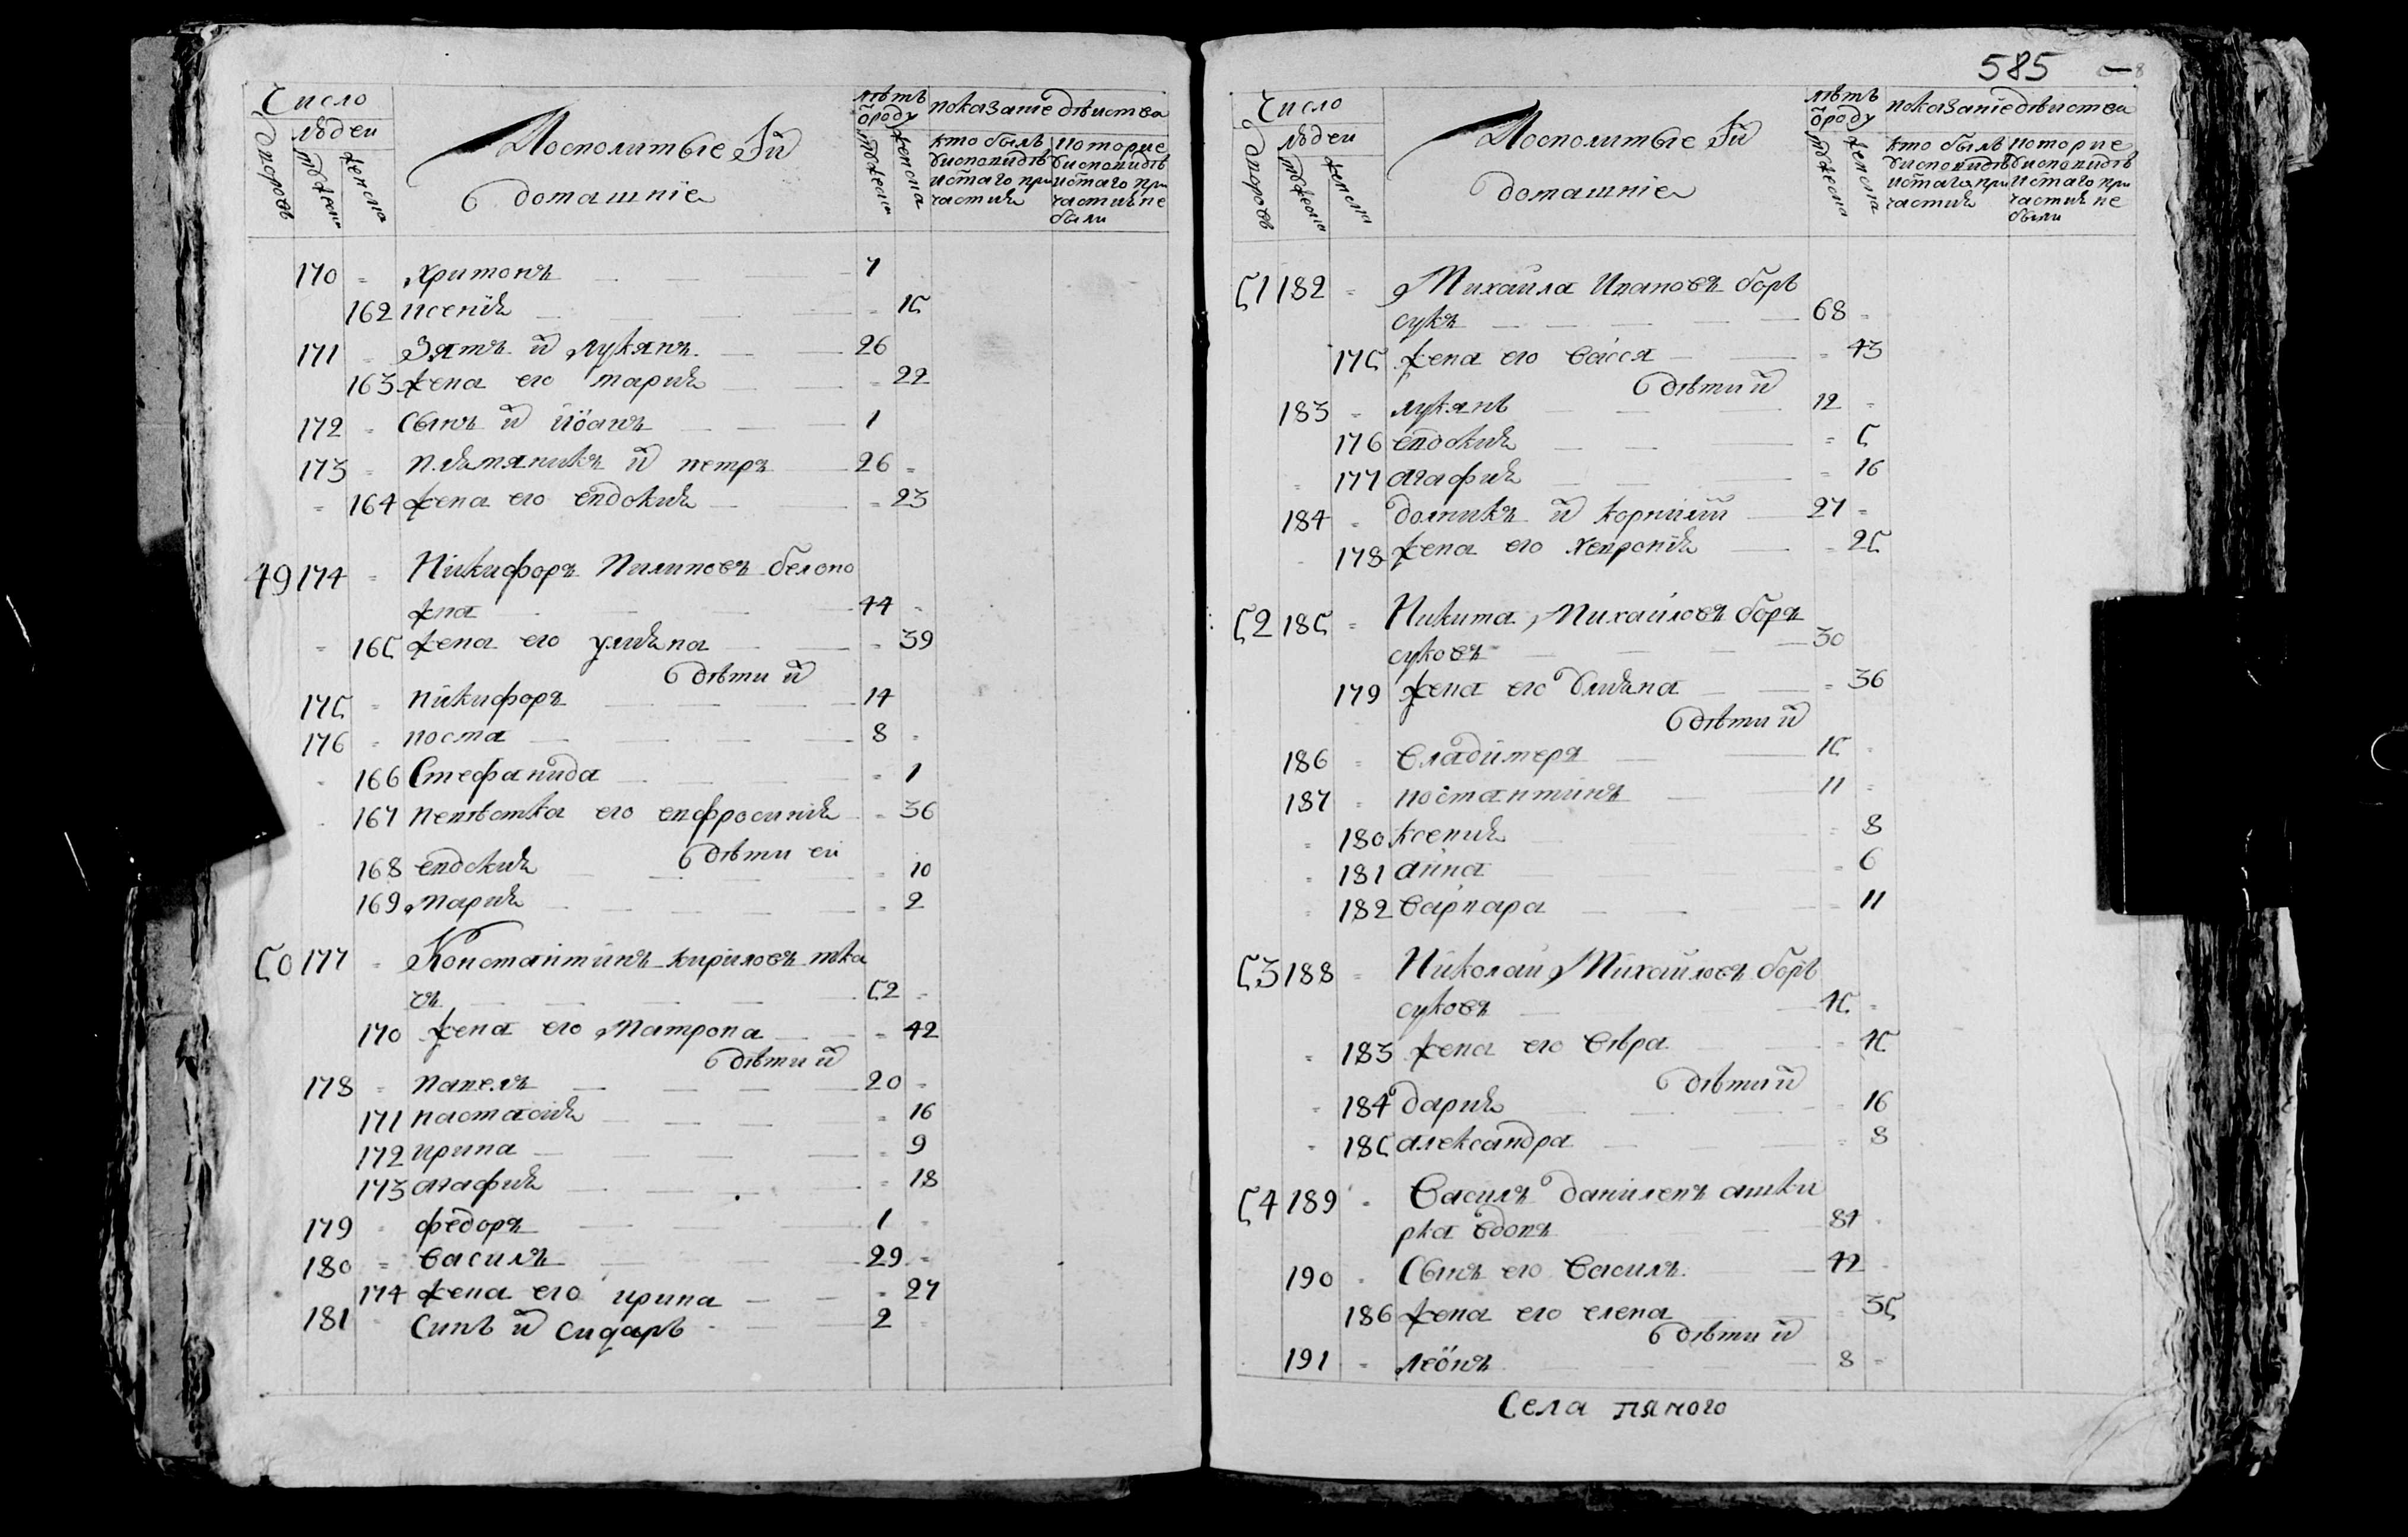 Число
людеи
дворовъ
мужеска
женска
Посполитые И
домашнїе
лѣтъ
ѿроду
мужеска
женска
показанїе дѣиства
кто былъ
висповидѣ
истаго при
частия
которие
висповидѣ
истаго при
частия не
были
170 - Харитонъ 7
162 Ксенїя 15
171 - Зятъ и Лукянъ 26
163 жена его Мария - 22
172 - Сынъ и Йоанъ 1
173 - племяникъ и петръ 26 -
- 164 жена его евдокия - 23
49 174 - Никифоръ Пилиповъ белоно
жка 44 -
- 165 жена его улияна - 39
дѣти и
175 - никифоръ 14
176 - коста 8 -
- 166 Стефанида - 1
- 167 невѣстка его евфросиния - 36
дѣти еи
168 евдокия - 10
169 Мария - 2
50 177 - Константинъ кириловъ тка
чъ 52 -
170 жена его Матрона - 42
дѣти и
178 - павелъ 20 -
171 настасия - 16
172 ирина - 9
173 агафия - 18
179 - федоръ 1 -
180 - василъ 29 -
174 жена его ирина - 27
181 - Синъ и Сидаръ 2 -
585
Число
людеи
дворовъ
мужеска
женска
Посполитые И
домашнїе
лѣтъ
ѿроду
мужеска
женска
показанїе дѣиства
кто былъ
висповидѣ
истаго при
частия
которие
висповидѣ
истаго при
частия не
были
51 182 - Михаила Ивановъ борь
сукъ 68 -
175 жена его васся - 43
дѣти и
183 - лукянъ 12 -
176 евдокия - 5
- 177 агафия - 16
184 - долникъ и корнилий 27 -
- 178 жена его хевронїя - 25
52 185 - Никита Михаиловъ боръ
суковъ 30
179 жена его Улияна - 36
дѣти и
186 - владимеръ 15 -
187 - костантинъ 11 -
- 180 ксения - 8
- 181 анна - 6
- 182 варвара - 11
53 188 - Николаи Михаиловъ борь
суковъ 45 -
- 183 жена его вѣра - 45
дѣти и
- 184 дария - 16
- 185 александра - 8
54 189 - Василъ даниленъ ашки
рка вдовъ 84 -
190 - Сынъ его василъ 42 -
186 жена его елена - 35
дѣти и
191 - леонъ 8 -
Села пяного